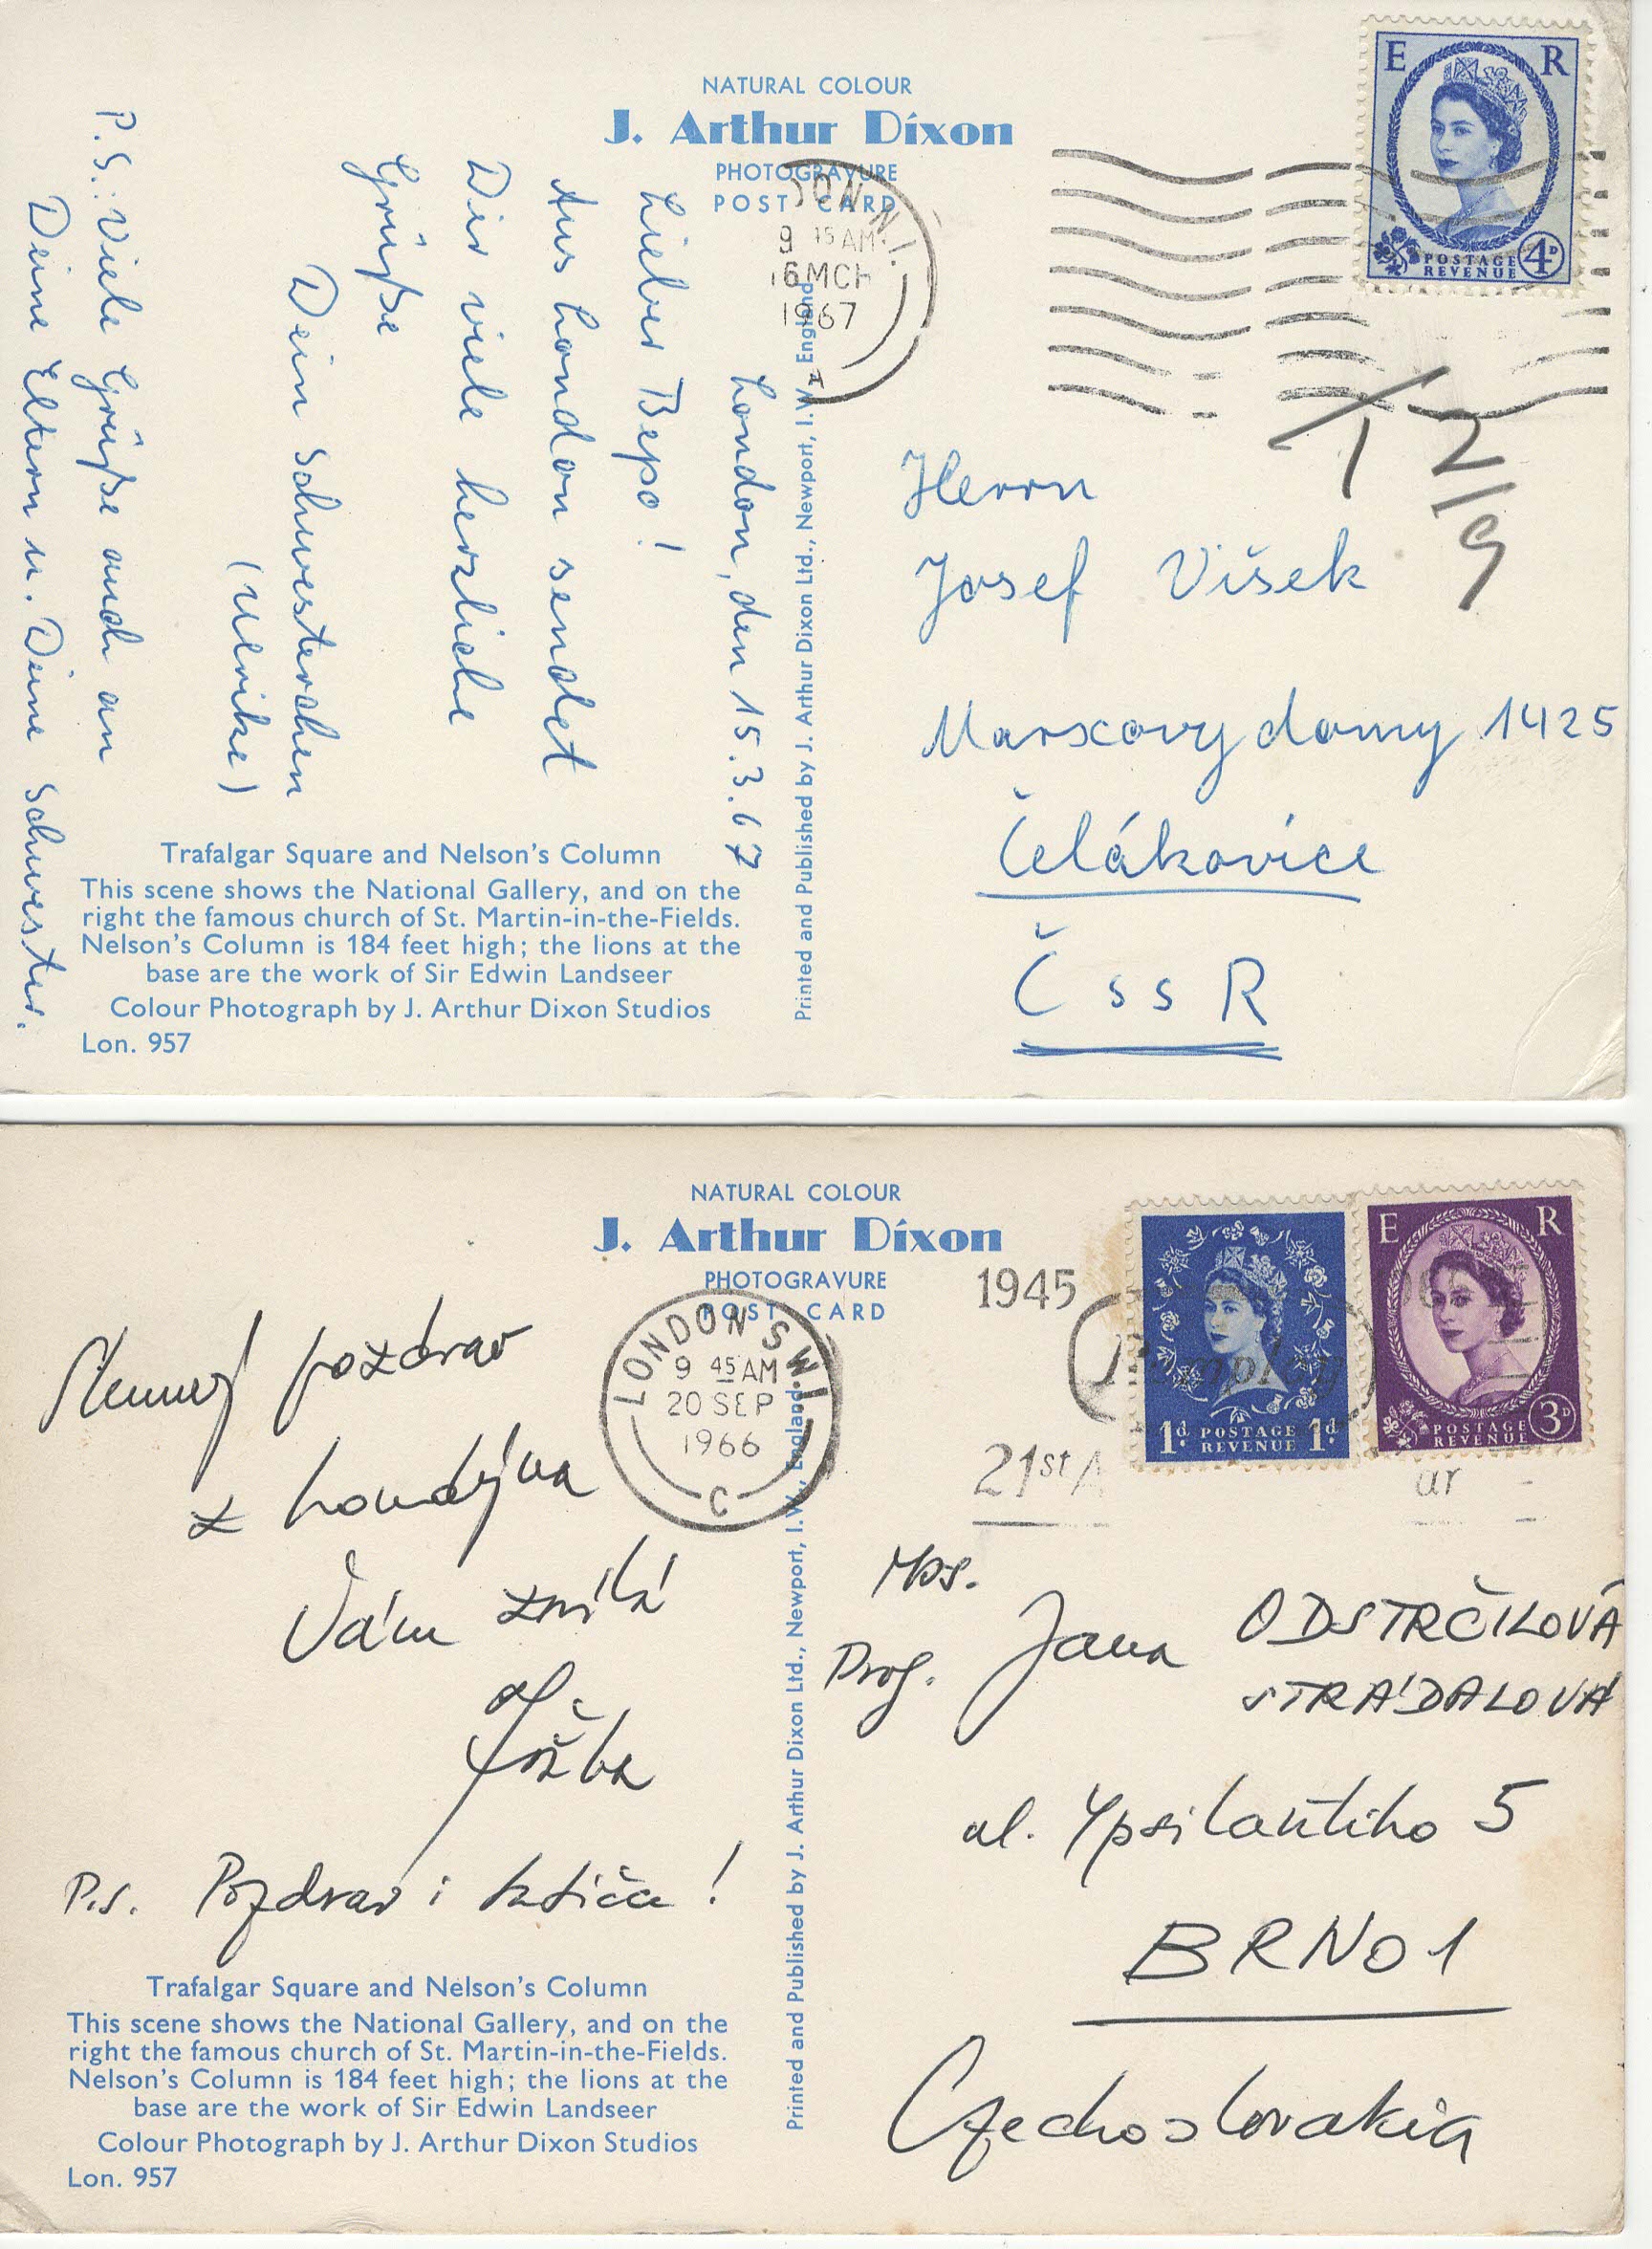 NATURAL COLOUR
J. Arthur Dixon
PHOTOGRAVURE
POST CARD
E R
POSTAGE
REVENUE
4D
9 15 AM
16 MCH
1967
London, den 15.3.67
Lieber Bepo!
Aus London sendet
Dir viele herzliche
Grüße
Dein Schwesterchen
(Ulrike)
P.S.: Viele Grüße auch an
Deine Eltern u. Deine Schwester.
Printed and Published by J. Arthur Dixon Ltd., Newport, I.W., England
T 2/9
Herrn
Josef Višek
Marxovy domy 1425
Čelákovice
ČSSR
Trafalgar Square and Nelson's Column
This scene shows the National Gallery, and on the
right the famous church of St. Martin-in-the-Fields.
Nelson's Column is 184 feet high; the lions at the
base are the work of Sir Edwin Landseer
Colour Photograph by J. Arthur Dixon Studios
Lon. 957
NATURAL COLOUR
J. Arthur Dixon
PHOTOGRAVURE
POST CARD
LONDON S.W.1
9 45 AM
20 SEP
1966
C
1945
21st
1d. POSTAGE 1d.
REVENUE
E R
POSTAGE
REVENUE
3D
pozdrav
z Londýna
Vám
Jožka
P.S. Pozdrav i
Printed and Published by J. Arthur Dixon Ltd., Newport, I.W., England
Mrs.
Prof. Jana ODSTRČILOVÁ
STRÁDALOVÁ
ul. Ypsilantiho 5
BRNO 1
Czechoslovakia
Trafalgar Square and Nelson's Column
This scene shows the National Gallery, and on the
right the famous church of St. Martin-in-the-Fields.
Nelson's Column is 184 feet high; the lions at the
base are the work of Sir Edwin Landseer
Colour Photograph by J. Arthur Dixon Studios
Lon. 957